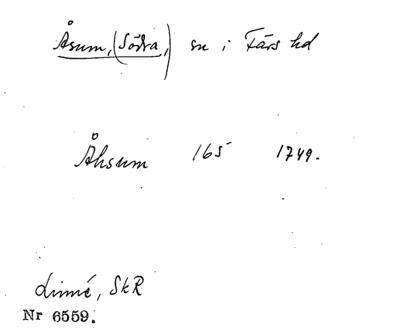 Åsum, (Södra,) sn i Färs hd
Åhsum 165 1749.
Linné, SkR
Nr 6559.